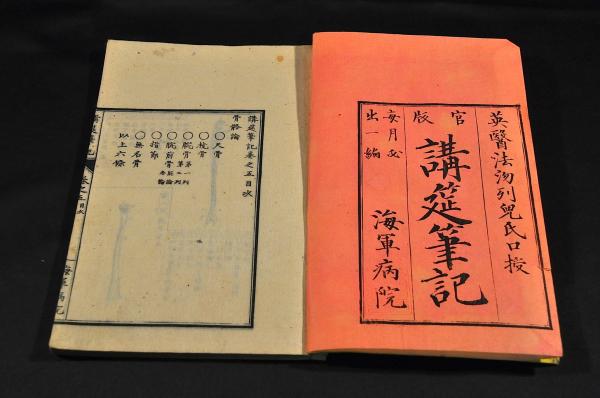 英醫法沕列兒氏口授
官版
講筵筆記
海軍病院
每月必出一編
講筵筆記卷之五目次
骨骼論
○尺骨
○橈骨
○腕骨第一列第二列
○指節
○無名骨
以上六條